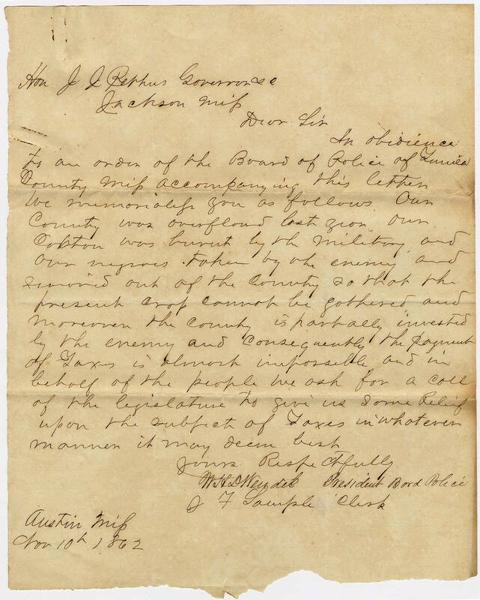 Hon J J Pettus Governor &c
Jackson Miss
Dear Sir
In obidience
to an order of the Board of Police of Tunica
County Miss accompanying this letter
we memorialise you as follows Our
County was overflowed last year our
Cotton was burnt by the military and
our negroes taken by the enemy and
out of the County so that the
present crop cannot be gathered and
moreover the County is partially invested
by the enemy and consequently the payment
of Taxes is almost impossible and in
behalf of the people we ask for a call
of the legislature to give us some Relief
upon the subject of Taxes in whatever
manner it may deem best
Yours Respectfully
President Bord Police
J F Sample Clerk
Austin Miss
Nov 10th 1862